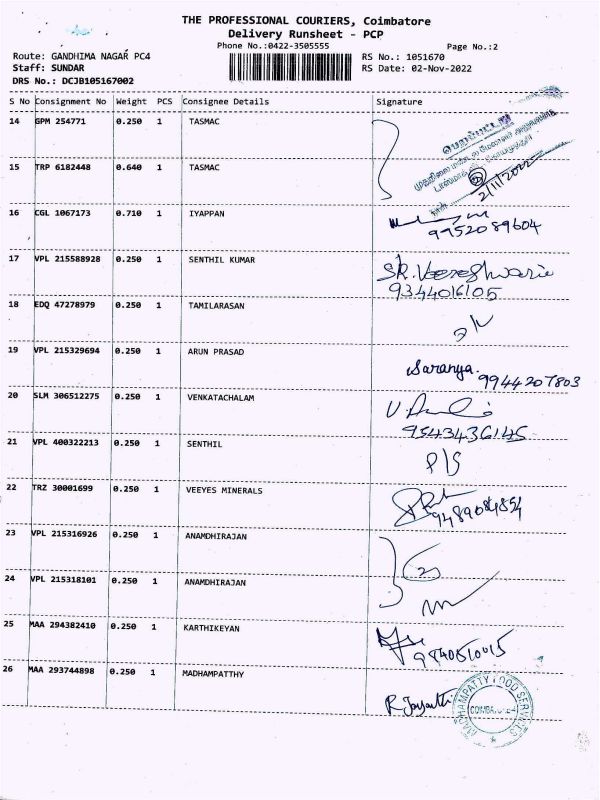 THE PROFESSIONAL COURIERS, Coimbatore
Delivery Runsheet - PCP
Phone No.:0422-3505555
Page No.:2
Route: GANDHIMA NAGAR PC4
RS No.: 1051670
Staff: SUNDAR
RS Date: 02-Nov-2022
DRS No.: DCJB105167002
S No Consignment No Weight PCS Consignee Details Signature
14 GPM 254771 0.250 1 TASMAC
பெறப்பட்டது
2/11/2022
15 TRP 6182448 0.640 1 TASMAC
16 CGL 1067173 0.710 1 IYAPPAN
9952089604
17 VPL 215588928 0.250 1 SENTHIL KUMAR
SR. Veereshwarie
9344016105
18 EDQ 47278979 0.250 1 TAMILARASAN
19 VPL 215329694 0.250 1 ARUN PRASAD
Saranya. 9944207803
20 SLM 306512275 0.250 1 VENKATACHALAM
9543436145
21 VPL 400322213 0.250 1 SENTHIL
P/S
22 TRZ 30001699 0.250 1 VEEYES MINERALS
9489084854
23 VPL 215316926 0.250 1 ANAMDHIRAJAN
24 VPL 215318101 0.250 1 ANAMDHIRAJAN
25 MAA 294382410 0.250 1 KARTHIKEYAN
26 MAA 293744898 0.250 1 MADHAMPATTHY
MADHAMPATTY FOOD SERVICES